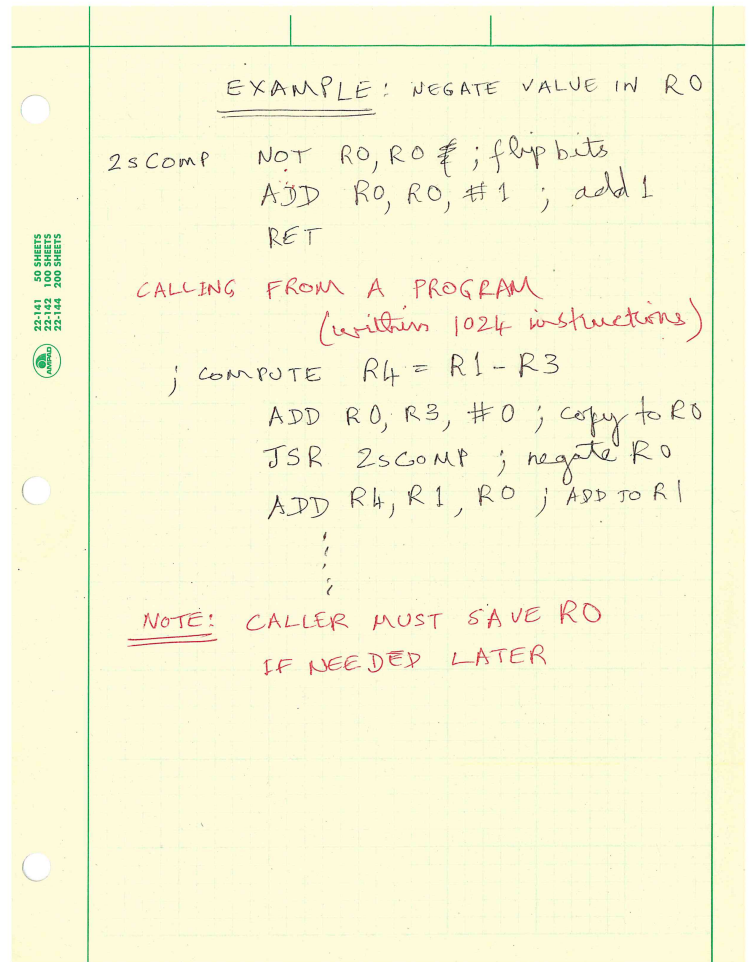 EXAMPLE: NEGATE VALUE IN R0
2sComp NOT R0, R0 ; flip bits
ADD R0, R0, #1 ; add 1
RET
CALLING FROM A PROGRAM
(within 1024 instructions)
; COMPUTE R4 = R1 - R3
ADD R0, R3, #0 ; copy to R0
JSR 2sCOMP ; negate R0
ADD R4, R1, R0 ; ADD TO R1
NOTE: CALLER MUST SAVE R0
IF NEEDED LATER
22-141 50 SHEETS
22-142 100 SHEETS
22-144 200 SHEETS
AMPAD